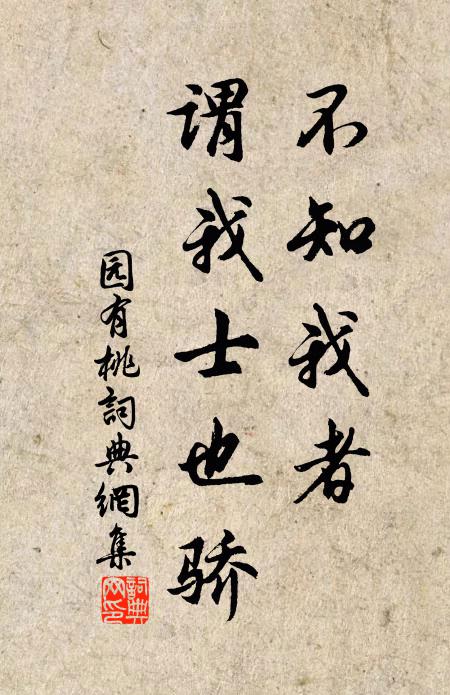 不知我者
谓我士也骄
园有桃詞典網集
詞典网印